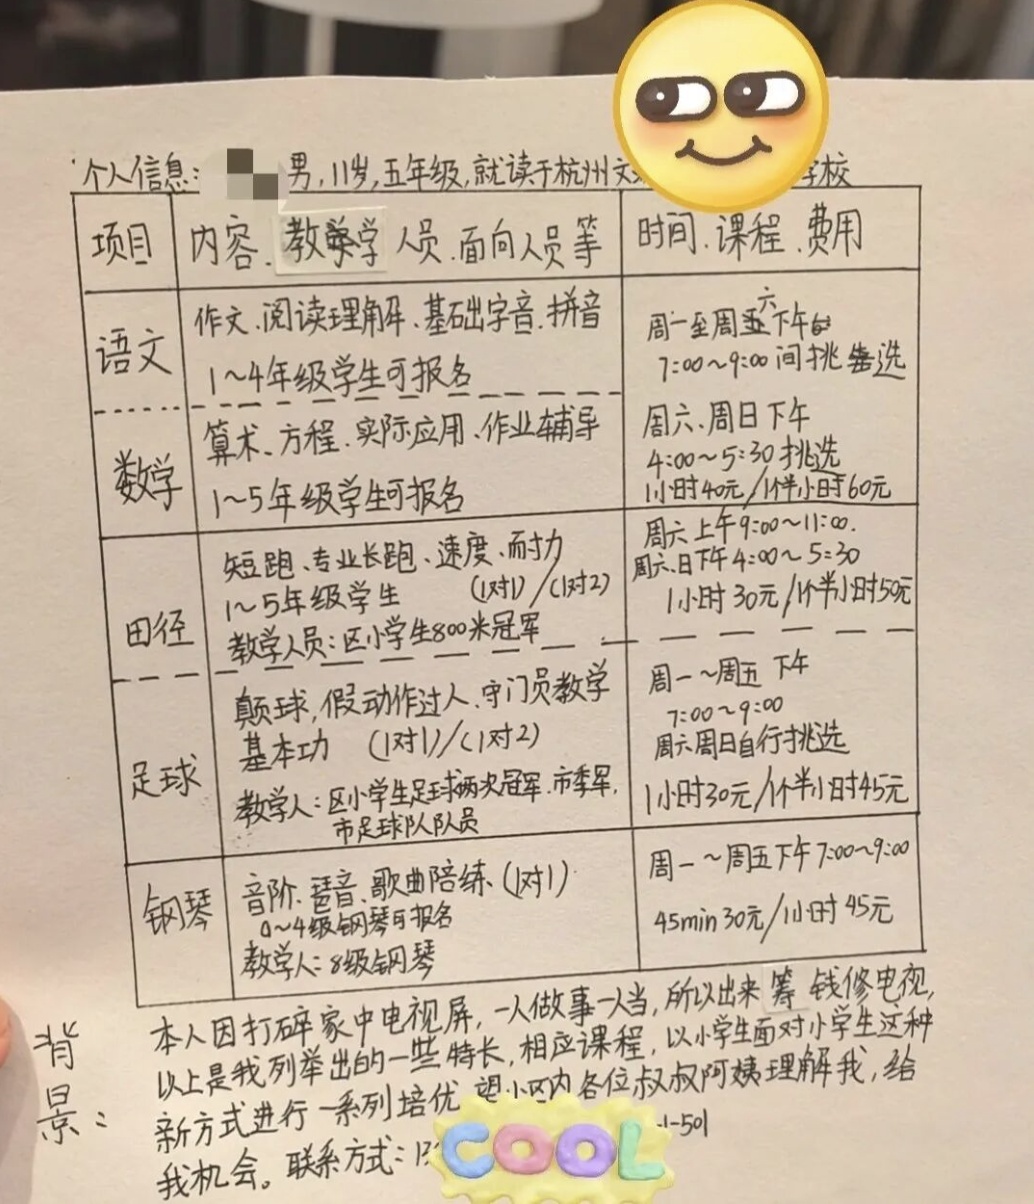 个人信息: 男,11岁,五年级,就读于杭州文 学校
项目
内容、教学人员、面向人员等
时间、课程、费用
语文
作文、阅读理解、基础字音、拼音
1~4年级学生可报名
周一至周六下午
7:00~9:00间挑选
数学
算术、方程、实际应用、作业辅导
1~5年级学生可报名
周六、周日下午
4:00~5:30挑选
1小时40元/1个半小时60元
田径
短跑、专业长跑、速度、耐力
1~5年级学生 (1对1)/(1对2)
教学人员:区小学生800米冠军
周六上午9:00~11:00.
周六、日下午4:00~5:30
1小时30元/1个半小时50元
足球
颠球,假动作过人、守门员教学
基本功 (1对1)/(1对2)
教学人:区小学生足球两次冠军、市季军,
市足球队队员
周一~周五 下午
7:00~9:00
周六周日自行挑选
1小时30元/1个半小时45元
钢琴
音阶、琶音、歌曲陪练、(1对1)
0~4级钢琴可报名
教学人:8级钢琴
周一~周五下午7:00~9:00
45min30元/1小时45元
背景:
本人因打碎家中电视屏,一人做事一人当,所以出来筹钱修电视,
以上是我列举出的一些特长,相应课程,以小学生面对小学生这种
新方式进行一系列培优 望小区内各位叔叔阿姨理解我,给
我机会。联系方式:13 1-501
COOL